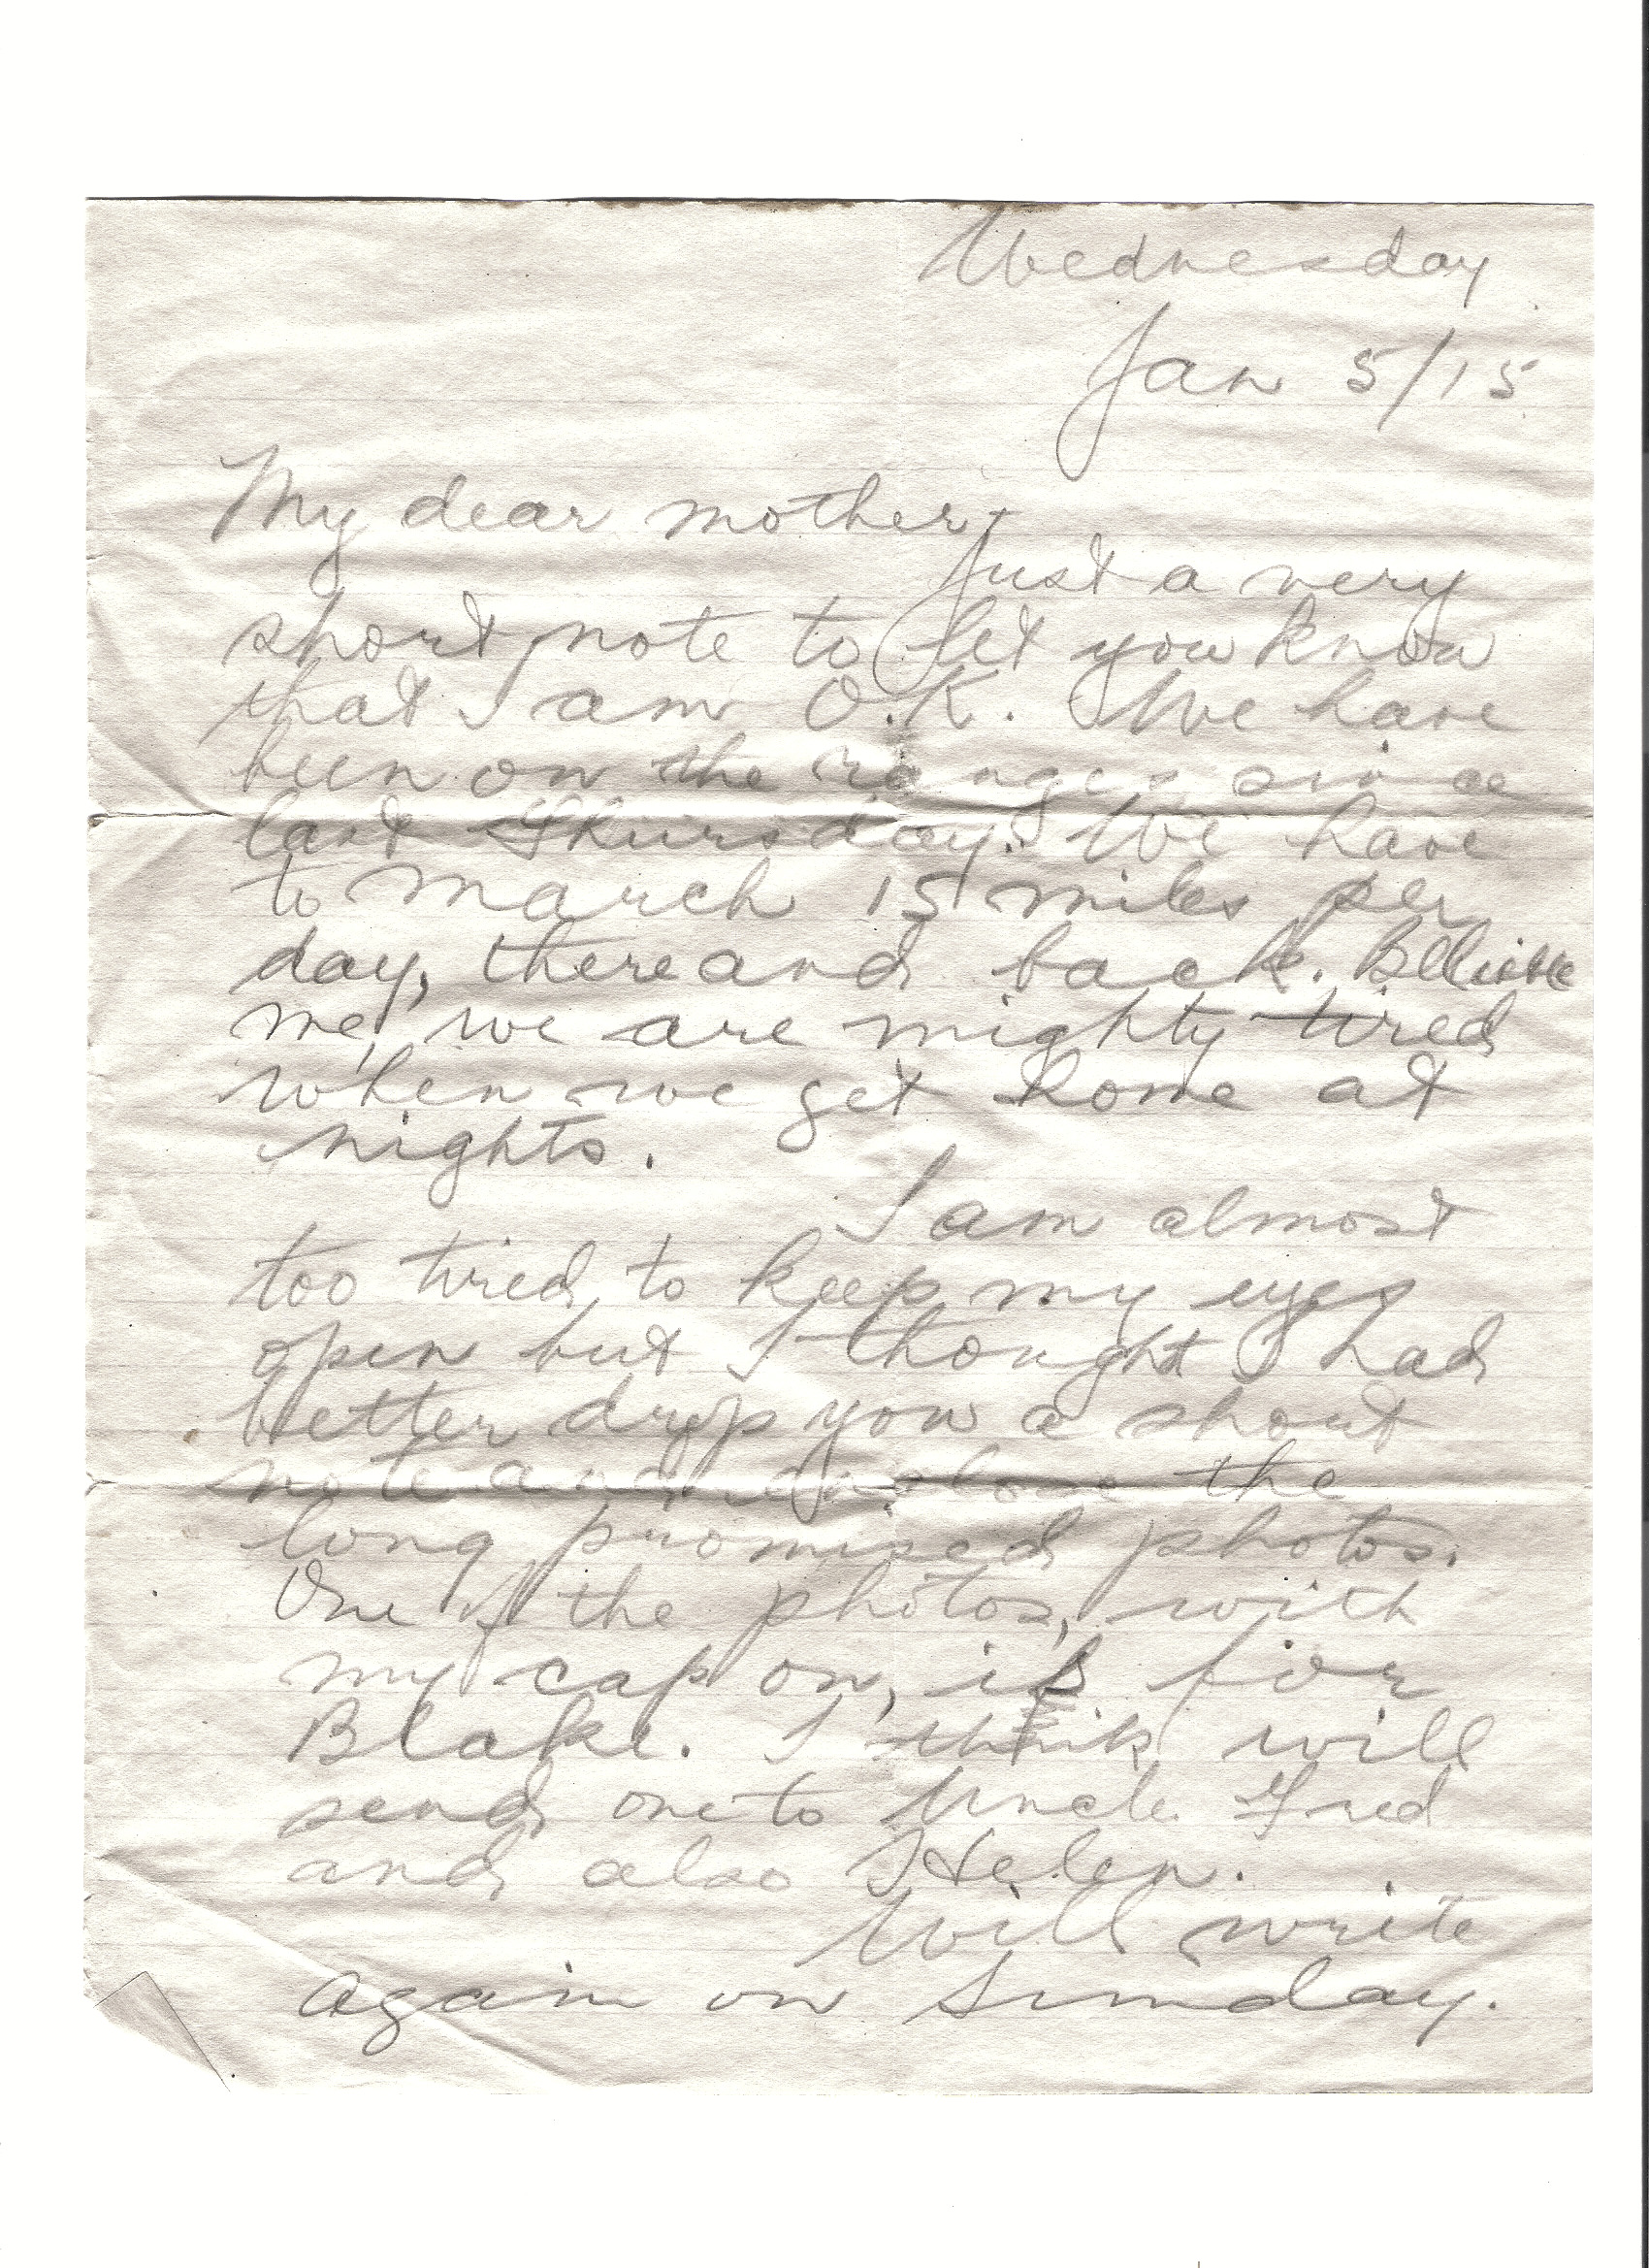 Wednesday
Jan 5/15
My dear mother,
Just a very
short note to let you know
that I am O.K. We have
been on the ranges since
last Thursday. We have
to march 15 miles per
day, there and back. Believe
me, we are mighty tired
when we get home at
nights.
I am almost
too tired to keep my eyes
open but I thought I had
better drop you a short
note and enclose the
long promised photos.
One of the photos, with
my cap on, is for
Blake. I think will
send one to Uncle Fred
and also Helen.
Will write
again on Sunday.